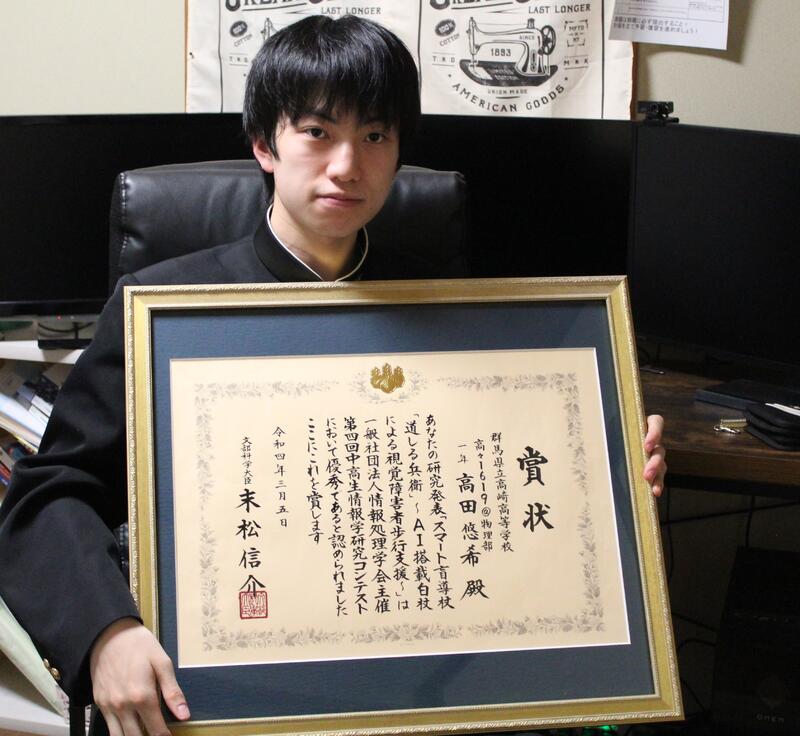 LAST LONGER
100%
COTTON
T.RD
LAST LONGER
100%
COTTON
SINCE
1893
MFTD
NY
T.RD
M.RK
UNION MADE
AMERICAN GOODS
賞状
群馬県立高崎高等学校
高々1619@物理部
一年 高田悠希殿
あなたの研究発表「スマート盲導杖
「道しる兵衛」～AI搭載白杖
による視覚障害者歩行支援～」は
一般社団法人情報処理学会主催
第四回中高生情報学研究コンテスト
において優秀であると認められました
ここにこれを賞します
令和四年三月五日
文部科学大臣 末松信介
OMEN